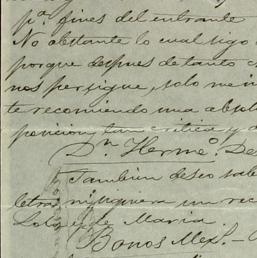 pª fines del entrante
No obstante lo cual sigo
porque despues de tanto
nos persigue, solo me
te recomiendo una
posición tan critica y
Dn. Hermo. De
Tambien deseo sabe
letras ni siquiera un rec
Lola y de Maria
Bonos Mex. -